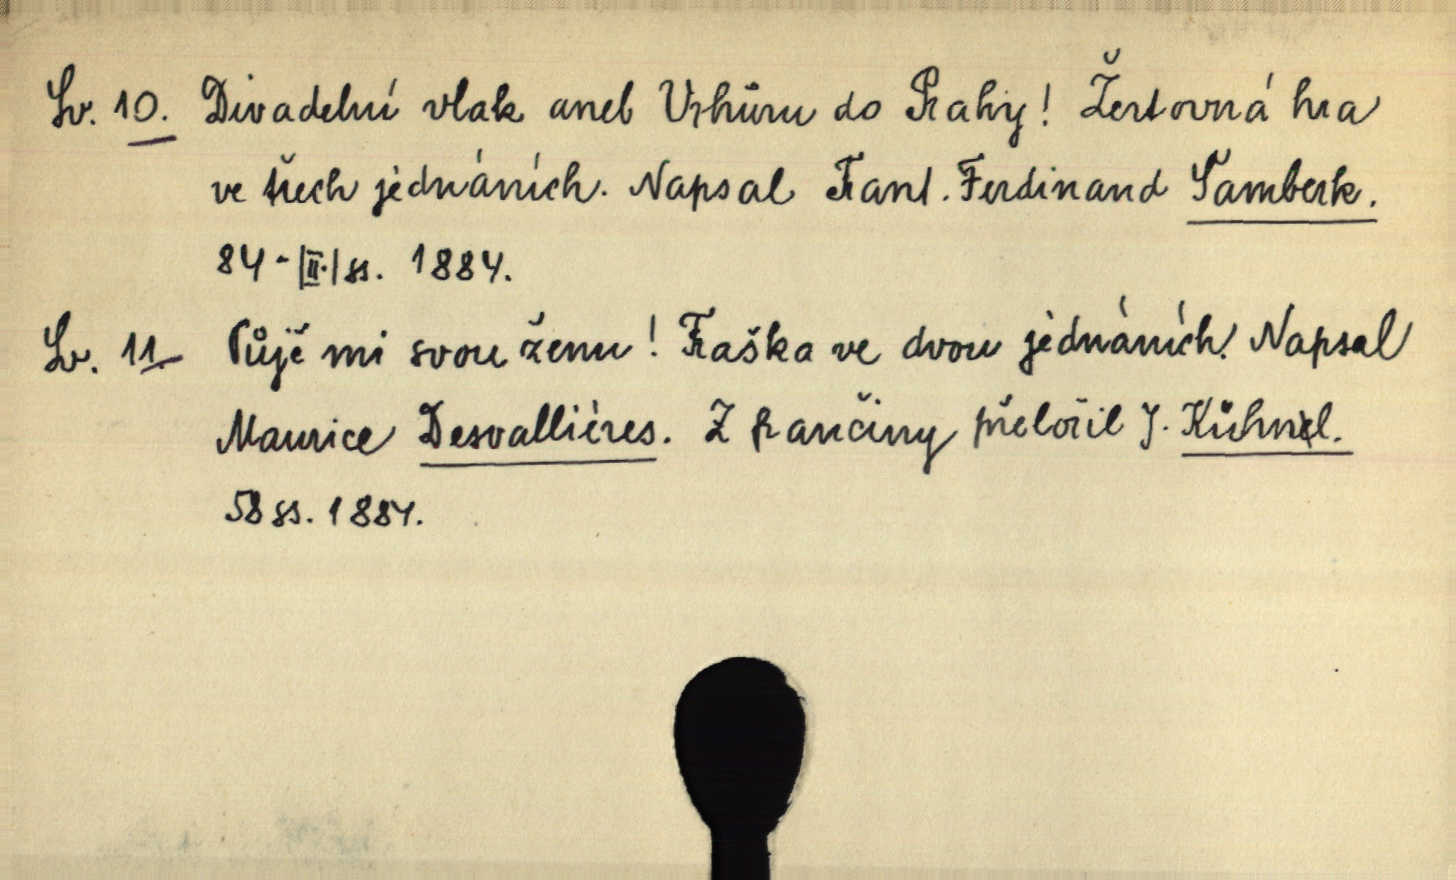 Sv. 10. Divadelní vlak aneb Vzhůru do Prahy! Žertovná hra
ve třech jednáních. Napsal Frant. Ferdinand Šamberk.
84 - |II.| ss. 1884.
Sv. 11. Půjč mi svou ženu! Fraška ve dvou jednáních. Napsal
Maurice Desvallières. Z frančiny přeložil J. Kühnel.
58 ss. 1884.